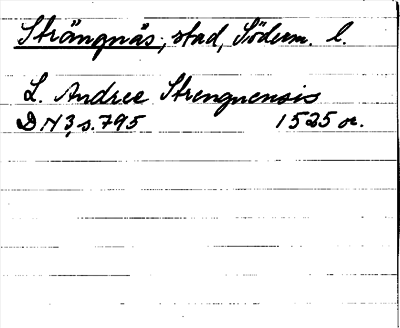 Strängnäs, stad, Söderm. l.
L. Andree Strengnensis
DN 3, s. 795 1525 or.